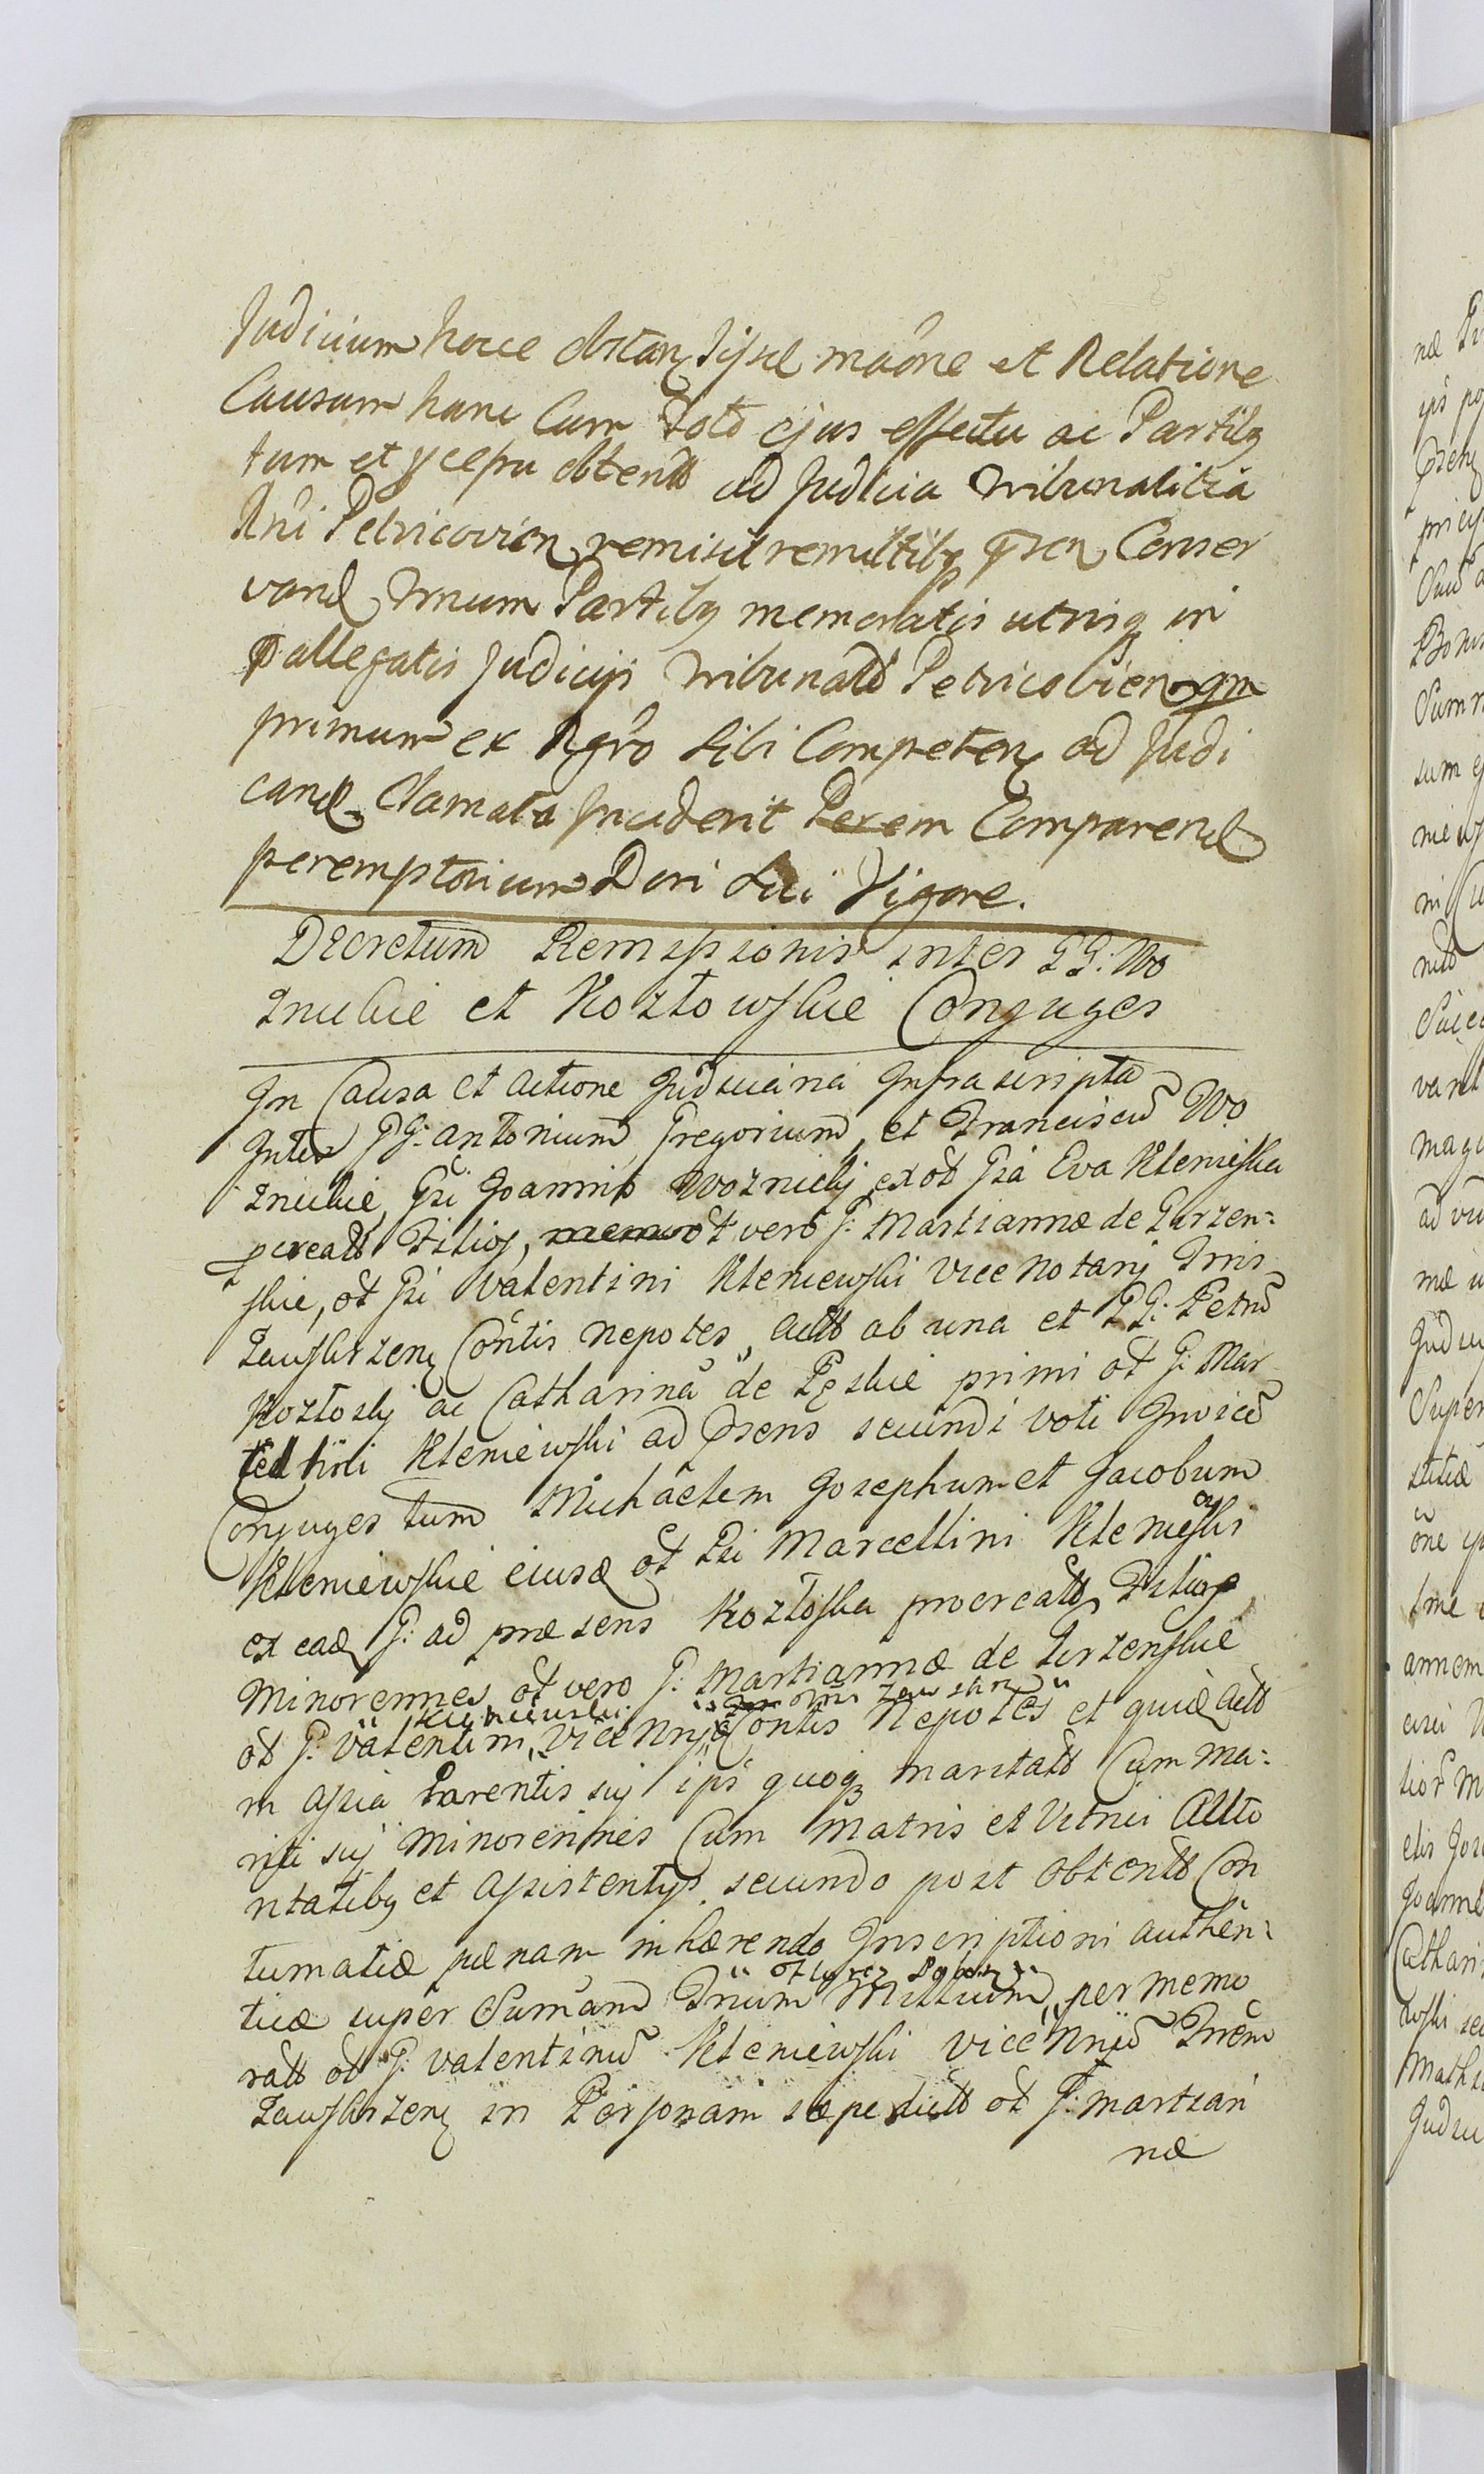 Judicium hocce obstan Ijsd māone et Relatione
Causam hanc Cum Toto ejus effectu ac Partibq
tum et obtentt ad Judicia Tribunalitia
Rni Petricovien remisit remittitq Conser
vand Tmum Partibq memoratis utrisq in
pallegatis Judicijs Tribunald Petricovien qm
primum ex Rgro Sibi Competen ad Judi
cand Clamata Inciderit Perem Comparend
peremptorium Dcri Sui Vigore.
Decretum Remissionis inter GG: Wo
znickie et Kozłowskie Conjuges
In Causa et Actione Judiciaria Infrascripta
Inter GG: Antonium, Gregorium, et Franciscũ Wo
znickie, Gsi Joannis Woznickj ex ōt Gsa Eva Kleniewska
pcreatt Filios, ōt vero G: Martiannæ de Gurzen=
skie, ōt Gsi Valentini Kleniewski Vice Notarij Trris
Zawskrzen Cōntis Nepotes, Actt ab una et GG: Petrũ
Kozłoskj ac Catharinā de Pęskie primi ōt G: Mar
Kleniewski ad psens secundi voti Invicẽ
Conjuges tum Michaelem Josephum et Jacobum
Kleniewskie ejusd ōt Gsi Marcellini Kleniewski
ex ead G: ad præsens Kozłoska procreatt Filios
Minorennes, ōt vero G: Martiannæ de Gurzenskie
Kleniewski Zawskrz
ōt G: Valentini, Vice Nrij Cōntis Nepotes et quid Actt
in Assia Parentis sij ipś quoq maritatt Cum Ma=
riti sij Minorennes Cum Matris et Vitrici Autto
ritatibq et Assistentijs secundo post obtentt Con
tumatiæ pænam inhærendo Inscriptioni authen=
ticæ super Sumām Trium Millium, per memo
ratt ōt G: Valentinũ Kleniewski Vice Nrijũ Trrem
Zawskrzen in Personam sæpedictt ōt G: Martian
næ